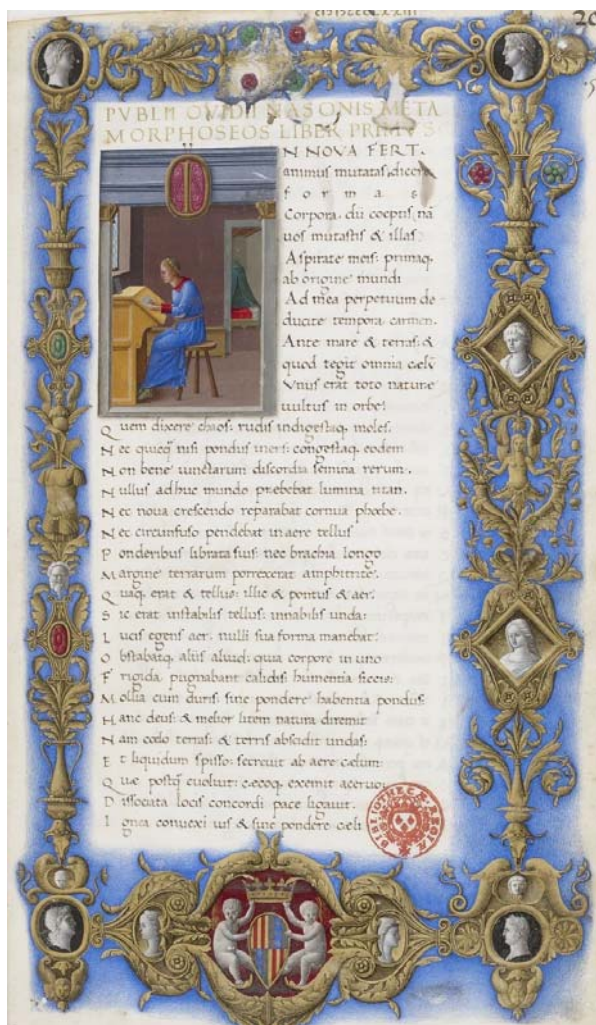 PVBLII OVIDII NASONIS META
MORPHOSEOS LIBER PRIMVS
I
N NOVA FERT.
animus mutatas, dicere
formas
Corpora. dii coeptis na
uos mutastis & illas:
Aspirate meis: primaq.
ab origine mundi
Ad mea perpetuum de
ducite tempora carmen.
Ante mare & terras: &
quod tegit omnia cælū
Vnus erat toto naturæ
uultus in orbe:
Quem dixere chaos: rudis indigestaq. moles.
Nec quicq̄ nisi pondus iners: congestaq. eodem
Non bene iunctarum discordia semina rerum.
Nullus adhuc mundo præbebat lumina titan.
Nec noua crescendo reparabat cornua phœbe.
Nec circunfuso pendebat in aere tellus
Ponderibus librata suis: nec brachia longo
Margine terrarum porrexerat amphitrite.
Quaq. erat & tellus: illic & pontus & aer.
Sic erat instabilis tellus: innabilis unda:
Lucis egens aer: nulli sua forma manebat:
Obstabatq. aliis aliud: quia corpore in uno
Frigida pugnabant calidis: humentia siccis:
Mollia cum duris: sine pondere habentia pondus
Hanc deus: & melior litem natura diremit
Nam cœlo terras: & terris abscidit undas:
Et liquidum spisso: secreuit ab aere cælum:
Quæ postq̄ euoluit: cæcoq. exemit aceruo:
Dissociata locis concordi pace ligauit.
Ignea conuexi uis & sine pondere cæli
BIBLIOTHECÆ REGIÆ